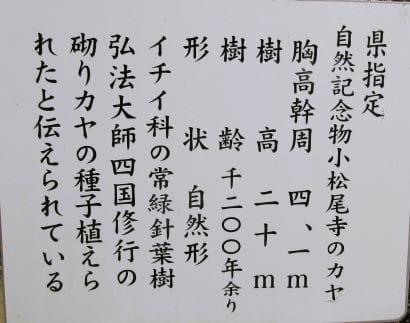 県指定
自然記念物小松尾寺のカヤ
胸高幹周 四、一m
樹高 二十m
樹齢 千二〇〇年余り
形状 自然形
イチイ科の常緑針葉樹
弘法大師四国修行の
砌りカヤの種子植えら
れたと伝えられている